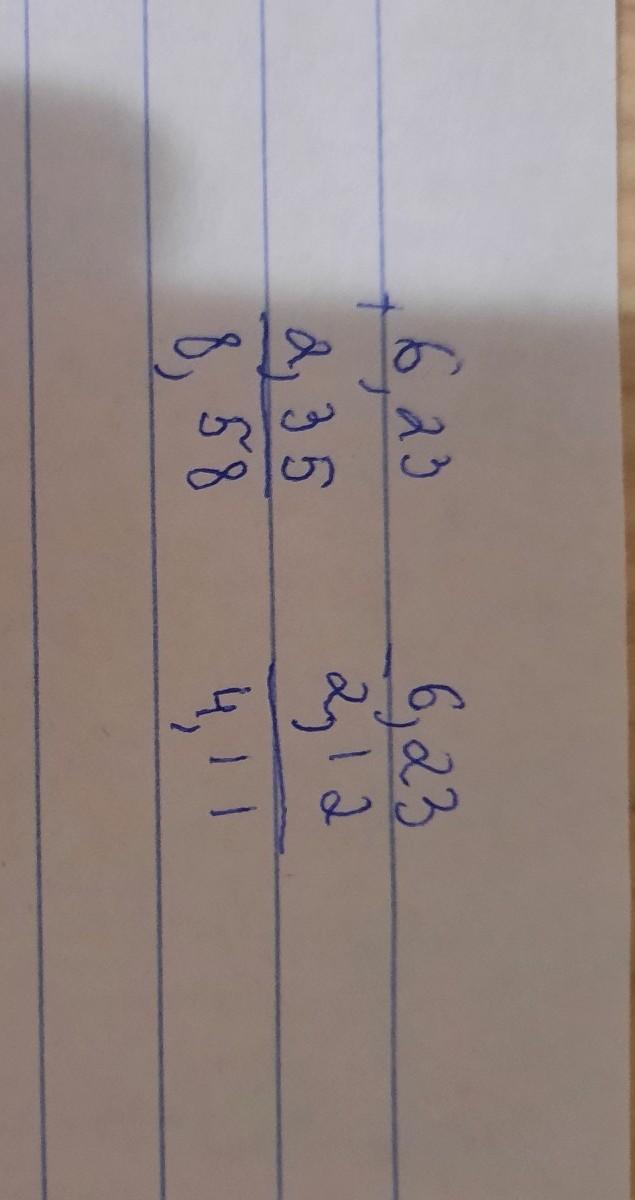 + 6,23 - 6,23
2,35 2,12
8,58 4,11